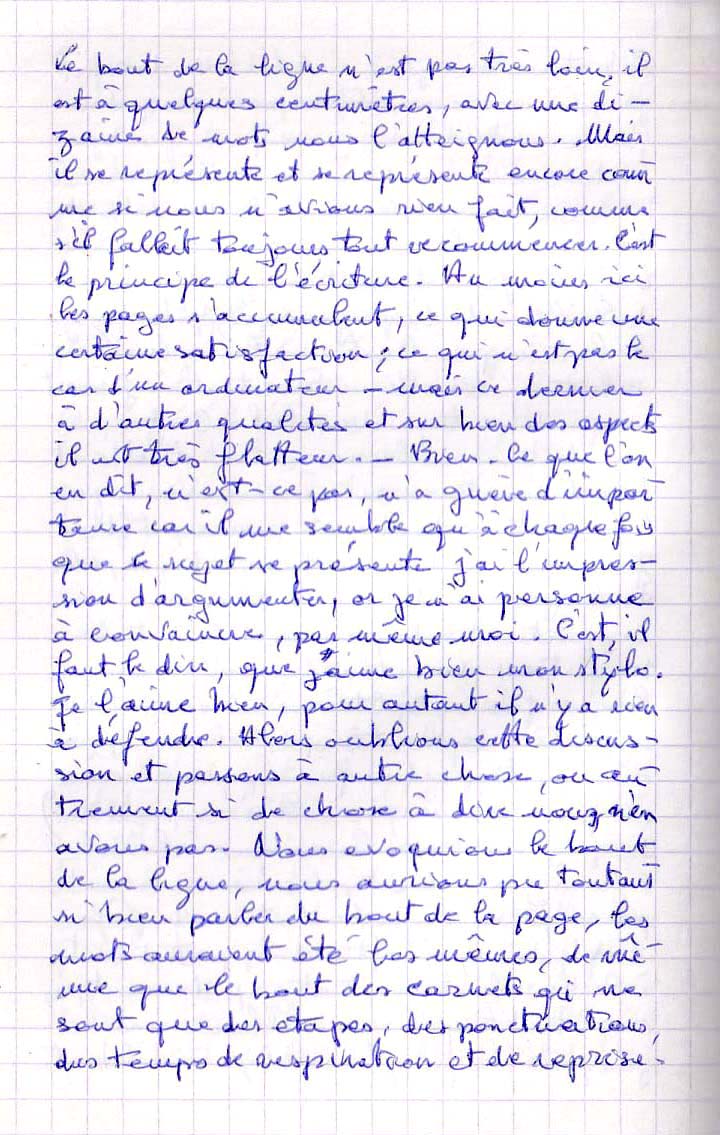 Le bout de la ligne n'est pas très loin, il
est à quelques centimètres, avec une di-
zaine de mots nous l'atteignons. Mais
il se représente et se représente encore com-
me si nous n'avions rien fait, comme
s'il fallait toujours tout recommencer. C'est
le principe de l'écriture. Au moins ici
les pages s'accumulent, ce qui donne une
certaine satisfaction ; ce qui n'est pas le
cas d'un ordinateur – mais ce dernier
à d'autres qualités et sur bien des aspects
il est très flatteur. – Bien. Ce que l'on
en dit, n'est-ce pas, n'a guère d'impor-
tance car il me semble qu'à chaque fois
que le sujet se présente j'ai l'impres-
sion d'argumenter, or je n'ai personne
à convaincre, pas même moi. C'est, il
faut le dire, que j'aime bien mon stylo.
Je l'aime bien, pour autant il n'y a rien
à défendre. Alors oublions cette discus-
sion et passons à autre chose, ou au-
trement si de chose à dire nous n'en
avons pas. Nous évoquions le bout
de la ligne, nous aurions pu tout aus-
si bien parler du bout de la page, les
mots auraient été les mêmes, de mê-
me que le bout des carnets qui ne
sont que des étapes, des ponctuations,
des temps de respiration et de reprise.